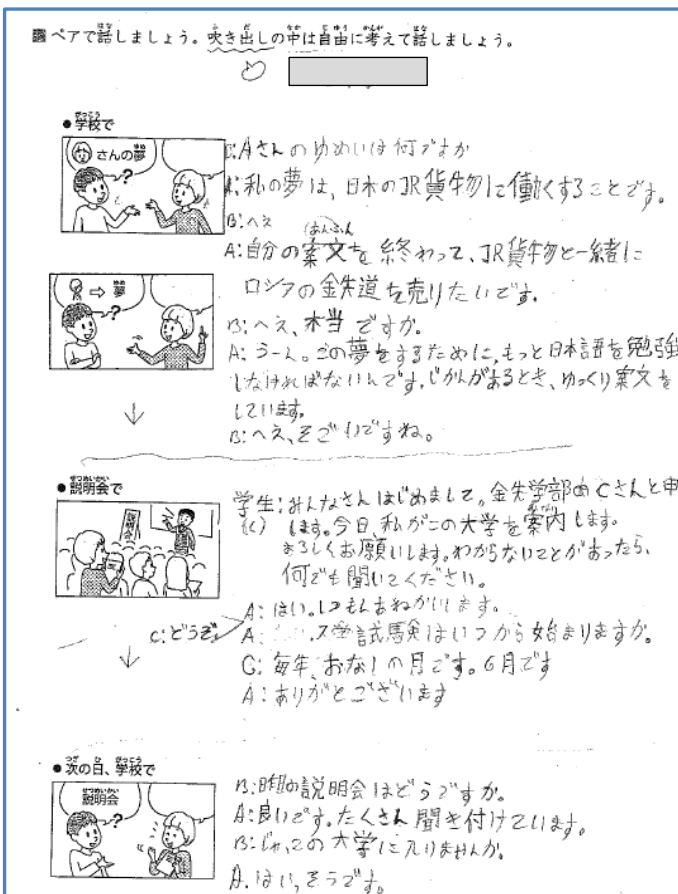 ペアで話しましょう。吹き出しの中は自由に考えて話しましょう。
●学校で
さんの夢
?
B:Aさんのゆめいは何ですか
A:私の夢は、日本のJR貨物に働くすることです。
B:へえ
A:自分の案文を終わって、JR貨物と一緒に
ロシアの鉄道を売りたいです。
⇨ 夢
?
B:へえ、本当ですか。
A:うーん。この夢をするために、もっと日本語を勉強
しなければないんです。じかんがあるとき、ゆっくり案文を
しています。
B:へえ、そごいですね。
●説明会で
説明会
学生:みんなさんはじめまして。金失学部のCさんと申
(C) します。今日、私がこの大学を案内します。
よろしくお願いします。わからないことがあったら、
何でも聞いてください。
A:はい。しつもんおねがいします。
C:どうぞ。
A: 入学試験はいつから始まりますか。
C:毎年、おなしの月です。6月です
A:ありがとございます
●次の日、学校で
説明会
?
B:昨日の説明会はどうですか。
A:良いです。たくさん聞き付けています。
B:じゃ、この大学に入りませんか。
A.はい、そうです。